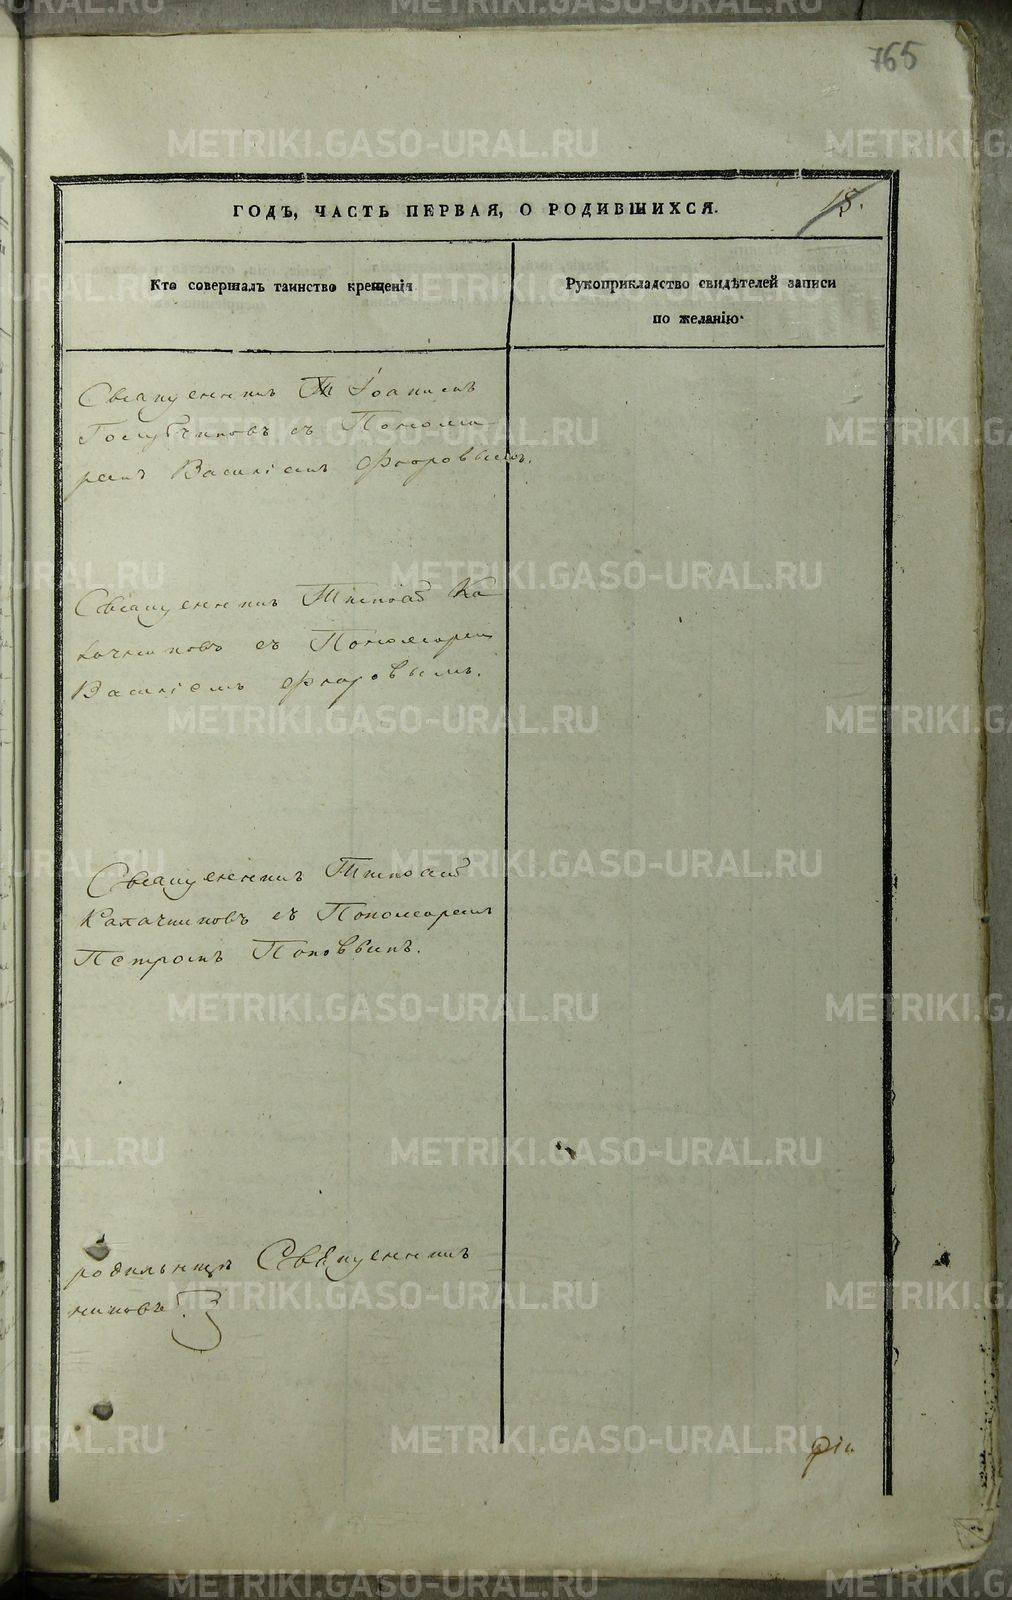 765
18.
ГОДЪ, ЧАСТЬ ПЕРВАЯ, О РОДИВШИХСЯ.
Кто совершалъ таинство крещенія
Рукоприкладство свидѣтелей записи
по желанію.
Священникъ Іоаннъ
Голубчиковъ съ Понома-
ремъ Василіемъ Флоровымъ.
Священникъ Тимоѳей Ка
лачниковъ съ Пономаремъ
Василіемъ Флоровымъ.
Священникъ Тимоѳей
Калачниковъ съ Пономаремъ
Петромъ Поповымъ.
Священникъ
никовъ
METRIKI.GASO-URAL.RU